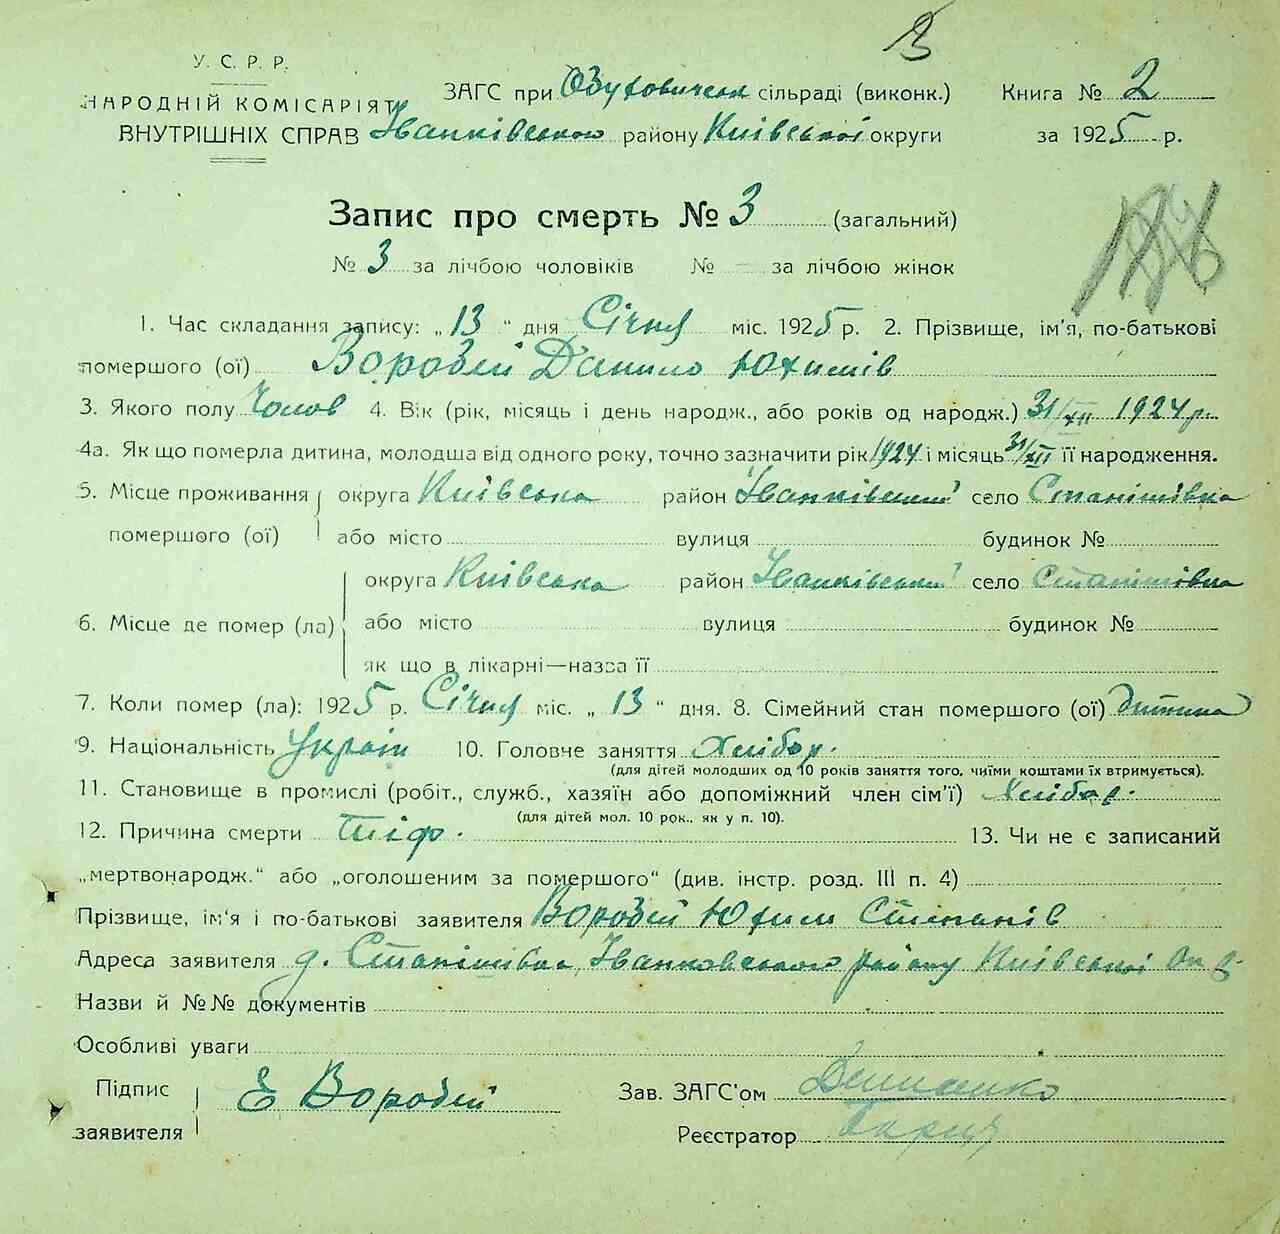 3
У. С. Р. Р.
НАРОДНІЙ КОМІСАРІЯТ
ВНУТРІШНІХ СПРАВ
ЗАГС при сільраді (виконк.) Книга № 2
Іванківського району Київської округи за 1925 р.
Запис про смерть № 3 (загальний)
№ 3 за лічбою чоловіків № – за лічбою жінок
1. Час складання запису: „ 13 “ дня Січня міс. 1925 р. 2. Прізвище, ім'я, по-батькові
помершого (ої) Воробей Данило Юхимів
3. Якого полу Чолов 4. Вік (рік, місяць і день народж., або років од народж.) 31/XII 1924 р.
4а. Як що померла дитина, молодша від одного року, точно зазначити рік 1924 і місяць 31/XII її народження.
5. Місце проживання округа Київська район Іванківський село Станішівка
помершого (ої) або місто вулиця будинок №
округа Київська район Іванківський село Станішівка
6. Місце де помер (ла) або місто вулиця будинок №
як що в лікарні—назва її
7. Коли помер (ла): 1925 р. Січня міс. „ 13 “ дня. 8. Сімейний стан помершого (ої) дитина
9. Національність Україн 10. Головче заняття Хлібор.
(для дітей молодших од 10 років заняття того, чиїми коштами їх втримується).
11. Становище в промислі (робіт., служб., хазяїн або допоміжний член сім'ї) Хлібор.
(для дітей мол. 10 рок., як у п. 10).
12. Причина смерти тіф. 13. Чи не є записаний
„мертвонародж.“ або „оголошеним за помершого“ (див. інстр. розд. III п. 4)
Прізвище, ім'я і по-батькові заявителя Воробей Юхим Степанів
Адреса заявителя д. Станішівка, Іванковського району Київської
Назви й №№ документів
Особливі уваги
Підпис Е Воробей Зав. ЗАГС'ом
заявителя Реєстратор